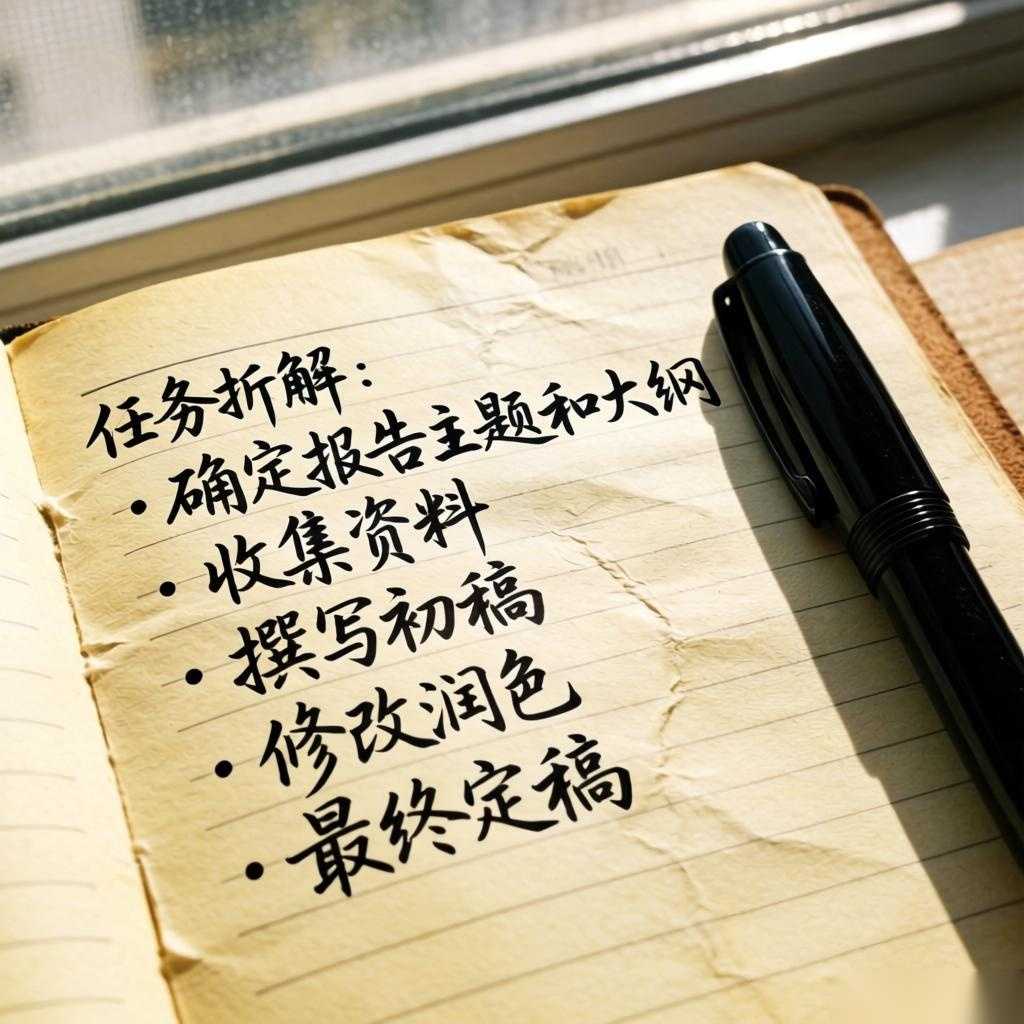 任务折解：
• 确定报告主题和大纲
• 收集资料
• 撰写初稿
• 修改润色
• 最终定稿